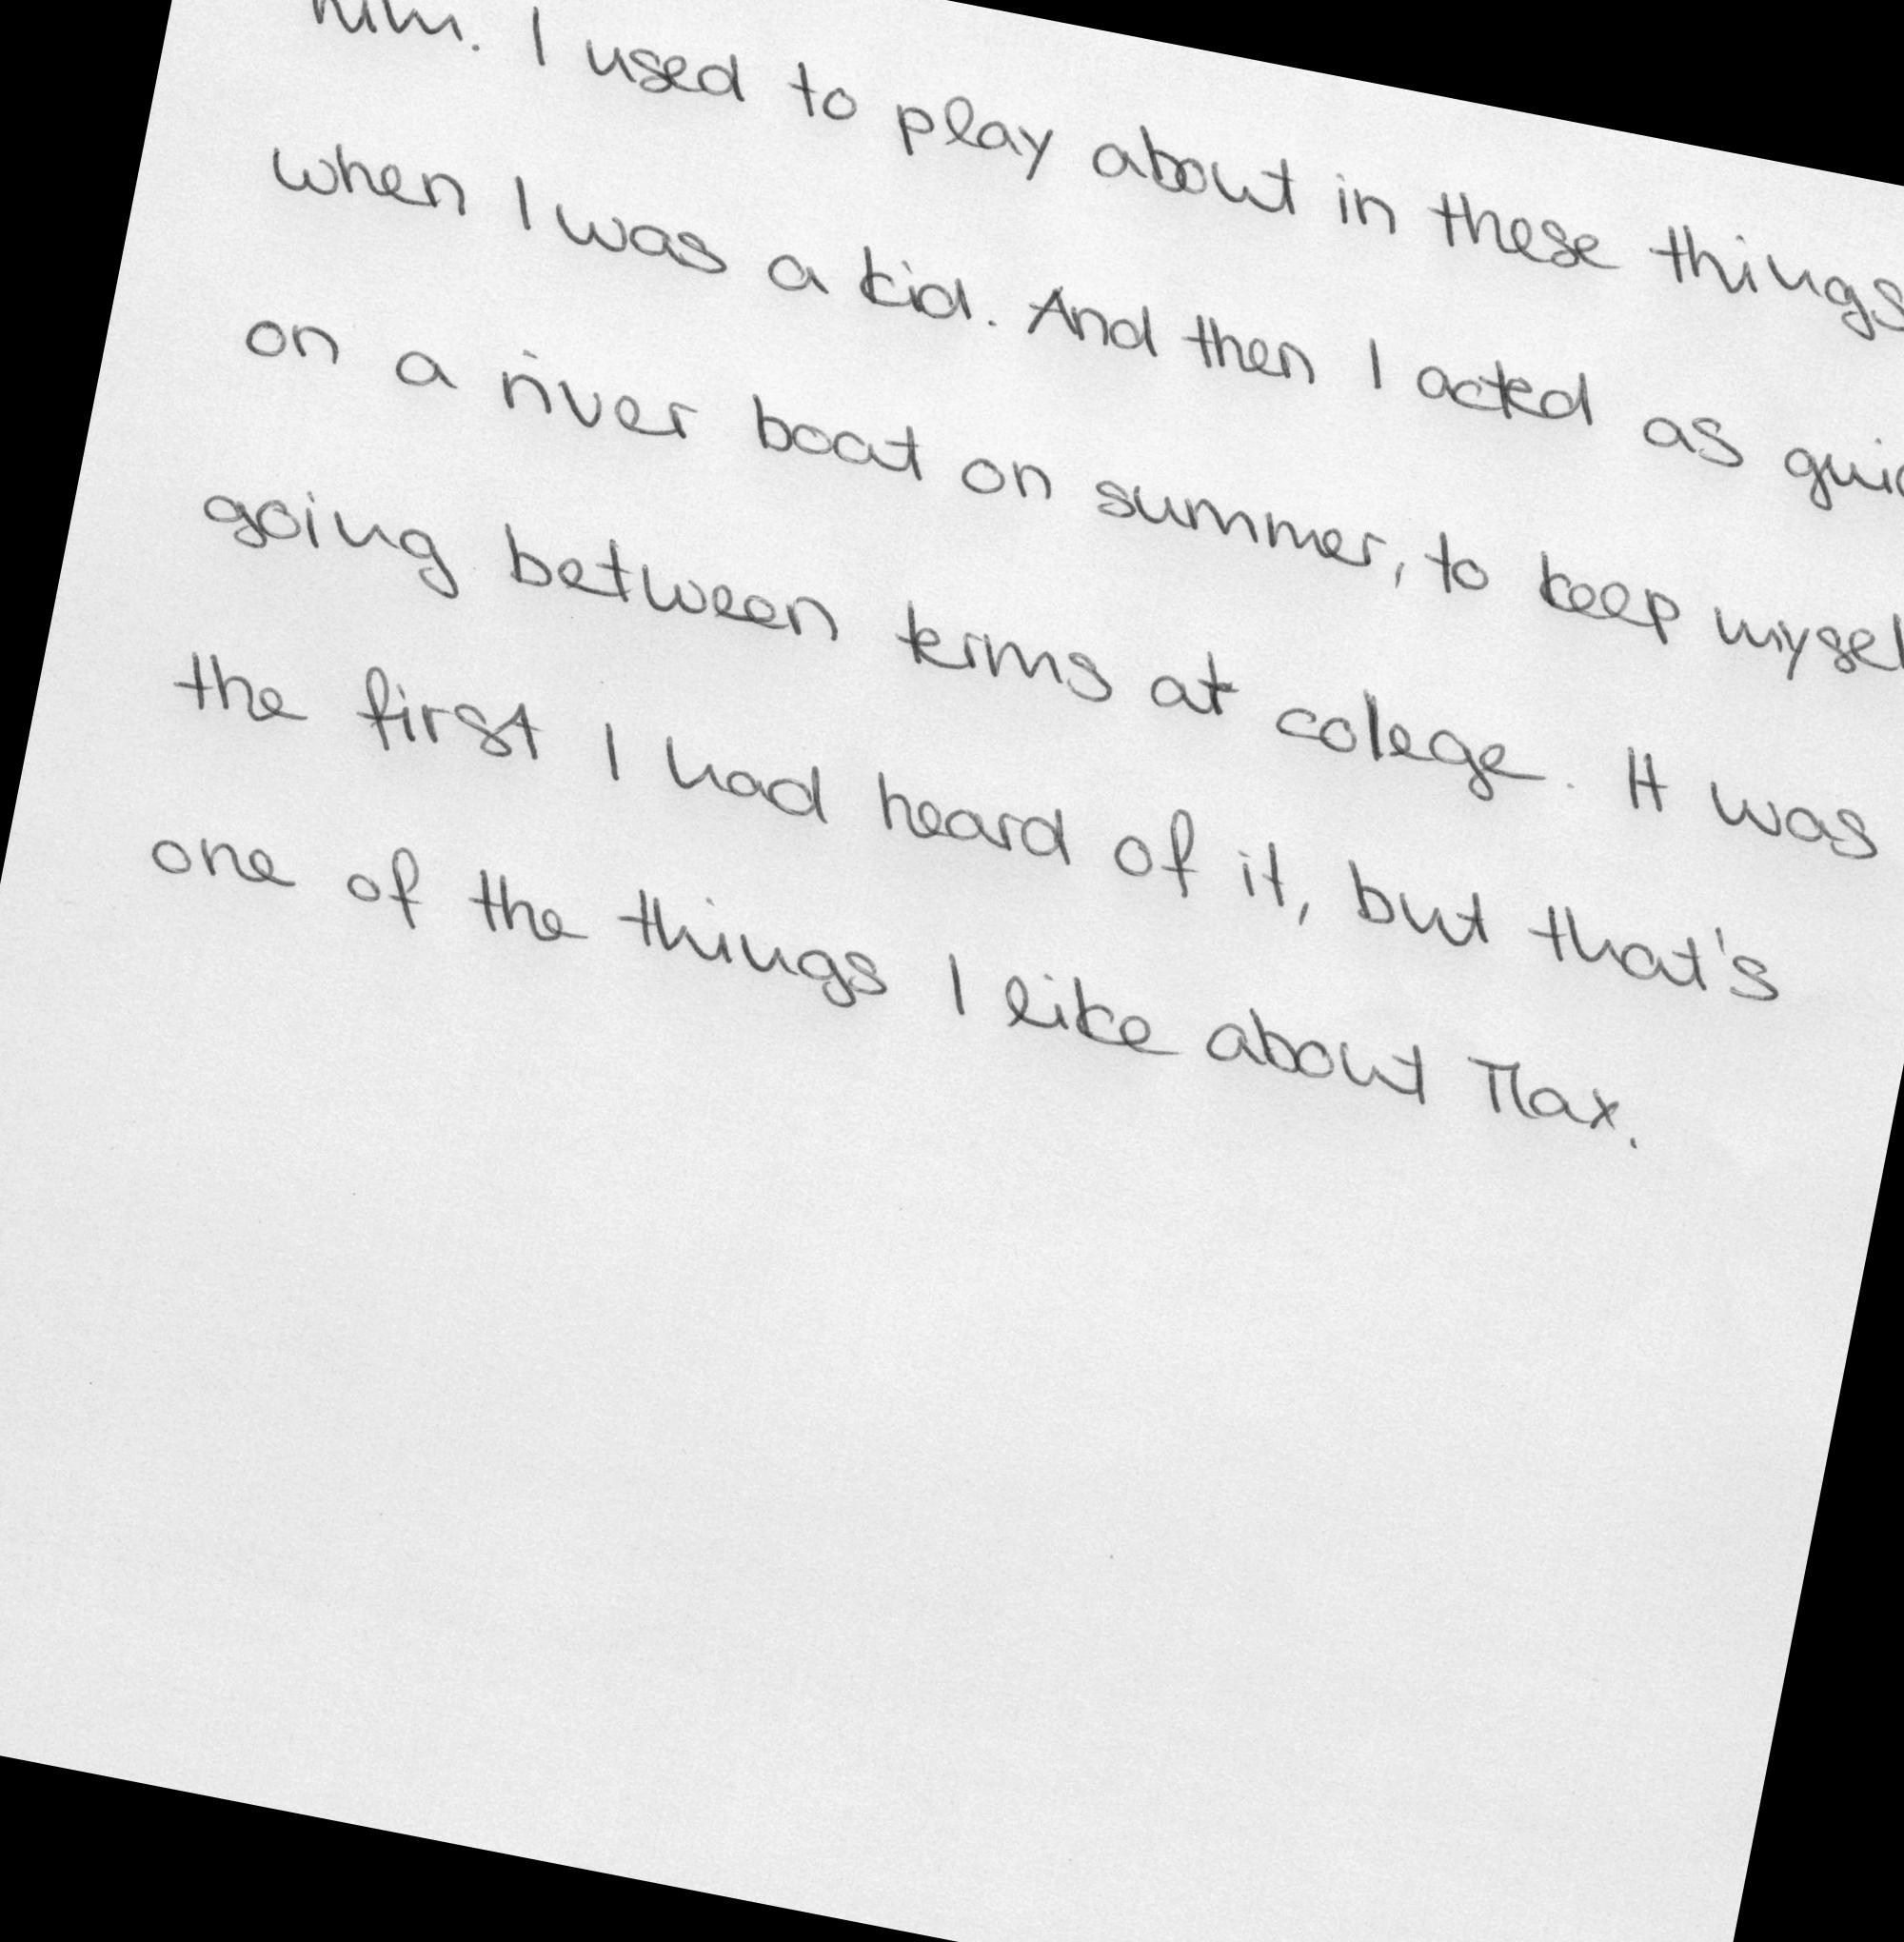 him. I used to play about in these things
when I was a kid. And then I acted as
on a river boat on summer, to keep
going between terms at colege. It was
the first I had heard of it, but that's
one of the things I like about Tlax.